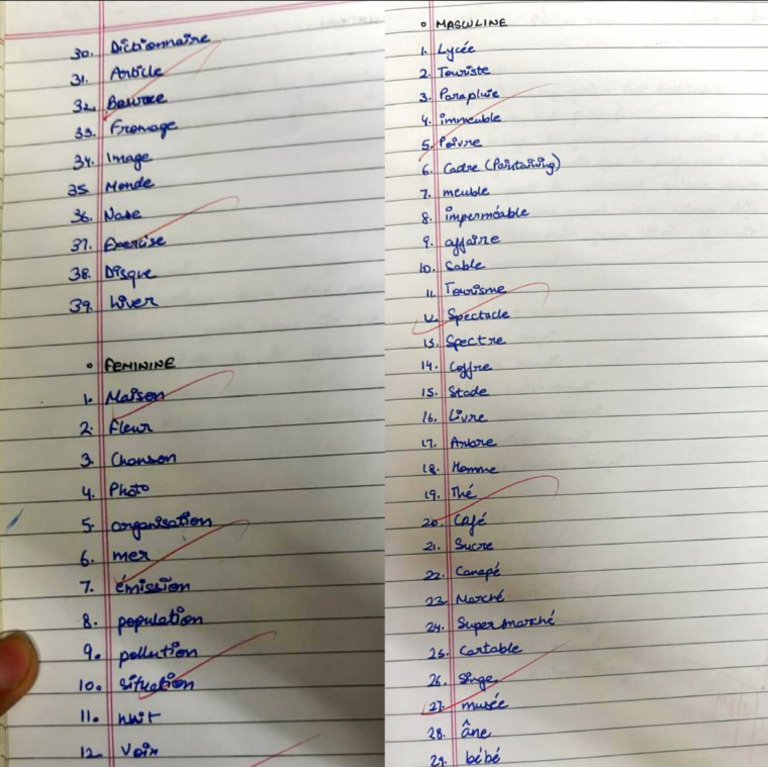 30. Dictionnaire
31. Article
32. Beurre
33. Fromage
34. Image
35. Monde
36. Vase
37. Exercise
38. Disque
39. hiver
FEMININE
1. Maison
2. Fleur
3. Chanson
4. Photo
5. organisation
6. mer
7. émission
8. population
9. pollution
10. situation
11. nuit
12. voix
MASCULINE
1. Lycée
2. Touriste
3. Parapluie
4. immeuble
5. Poivre
6. Cadre (Paintaiving)
7. meuble
8. imperméable
9. affaire
10. Sable
11. Tourisme
12. Spectacle
13. Spectre
14. Coffre
15. Stade
16. Livre
17. Arbre
18. Homme
19. Thé
20. Café
21. Sucre
22. Canapé
23. Marché
24. Supermarché
25. Cartable
26. Singe
27. musée
28. âne
29. bébé